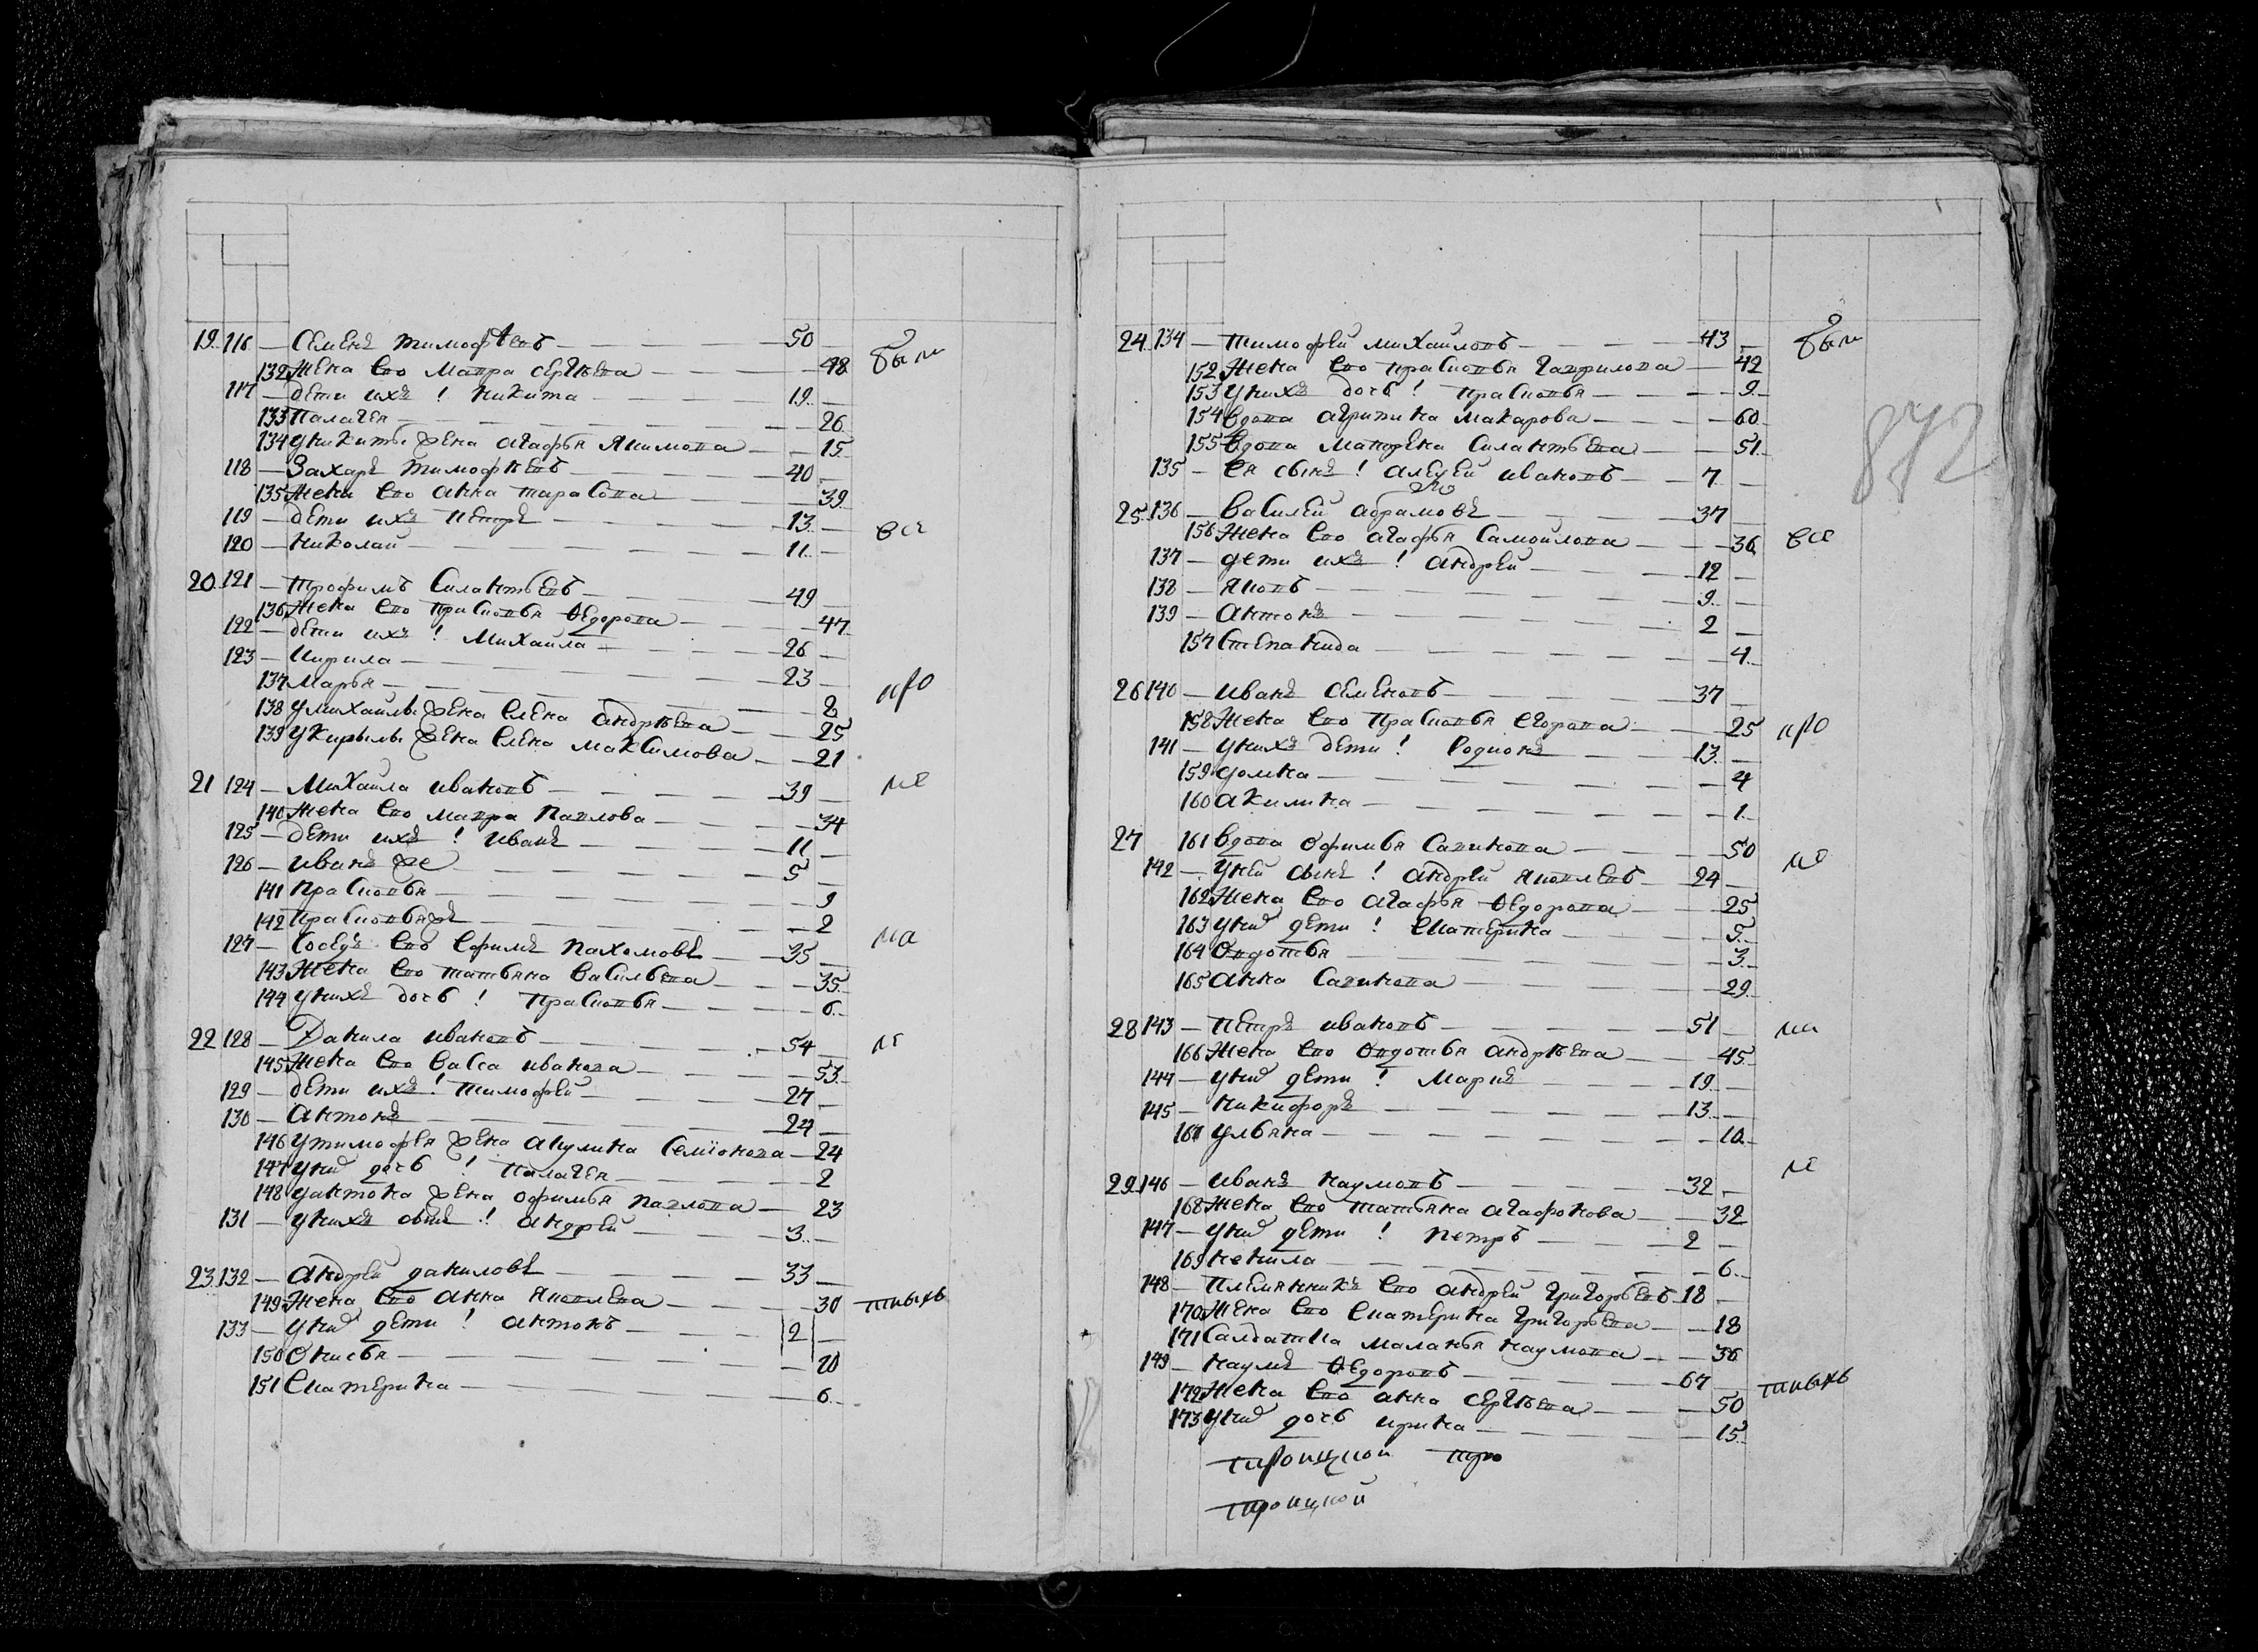 19. 116 — Семенъ Тимофѣевъ — 50 — были
132 Жена ево Мавра Сергѣева — 48
117 — дети ихъ ! Никита — 19
133 Палагея — 26
134 у Никиты жена Агафья Якимова — 15
118 — Захаръ Тимофѣевъ — 40
135 Жена ево Анна Тарасова — 39
119 — дети ихъ Петръ — 13
120 — Николай — 11 все
20. 121 — Трофимъ Силантьевъ — 49
136 Жена ево Прасковья Ѳедорова — 47
122 — дети ихъ ! Михайла — 26
123 — Кирила — 23
137 Марья — 2 про
138 у Михайлы жена Елена Андрѣева — 25
139 у Кирилы жена Елена Максимова — 21
21 124 — Михайла Ивановъ — 39 — не
140 Жена ево Мавра Павлова — 34
125 — дети ихъ ! Иванъ — 11
126 — Иванъ же — 5
141 Прасковья — 9
142 Прасковья же — 2
127 — Соседъ ево Ефимъ Пахомовъ — 35 — на
143 Жена ево Татьяна Васильева — 35
144 у нихъ дочь ! Прасковья — 6
22 128 — Данила Ивановъ — 54
145 Жена ево Васса Иванова — 53
129 — дети ихъ ! Тимофей — 27
130 — Антонъ — 24
146 у Тимофея жена Акулина Семионова — 24
147 у них дочь ! Палагея — 2
148 у Антона жена Офимья Павлова — 23
131 — у нихъ сынъ ! Андрей — 3
23. 132 — Андрей Даниловъ — 33
149 Жена ево Анна Яковлева — 30
133 — у них дети ! Антонъ — 2
150 Онисья — 20
151 Екатерина — 6
24. 134 — Тимофей Михайловъ — 43 — были
152 Жена ево Прасковья Гаврилова — 42
153 у нихъ дочь ! Прасковья — 9
154 Вдова Агрипина Макарова — 60
155 Вдова Матрена Силантьева — 51
135 — ея сынъ ! Алексей Ивановъ — 7
872
25. 136 — Василей Абрамовъ — 37
156 Жена ево Агафья Самойлова — 36 все
137 — дети ихъ ! Андрей — 12
138 — Яковъ — 9
139 — Антонъ — 2
157 Степанида — 4
26 140 — Иванъ Семеновъ — 37
158 Жена ево Прасковья Егорова — 25 про
141 — у нихъ дети ! Родионъ — 13
159 Домна — 4
160 Акилина — 1
27 161 Вдова Офимья Савинова — 50
142 — у ней сынъ ! Андрей Яковлевъ — 24 — не
162 Жена ево Агафья Ѳедорова — 25
163 у них дети ! Екатерина — 5
164 Овдотья — 3
165 Анна Савинова — 29
28 143 — Петръ Ивановъ — 51 — на
166 Жена ево Овдотья Андрѣева — 45
144 — у них дети ! Маркъ — 19
145 — Никифоръ — 13
167 Ульяна — 10
29. 146 — Иванъ Наумовъ — 32
168 Жена ево Татьяна Агафонова — 32
147 — у них дети ! Петръ — 2
169 Ненила — 6
148 — Племянникъ ево Андрей Григорьевъ 18
170 Жена ево Екатерина Григорьева — 18
171 Салдатка Маланья Наумова — 36
149 — Наумъ Ѳедоровъ — 67
172 Жена ево Анна Сергѣева — 50
173 у них дочь Ирина — 15
троицкой про
троицкой